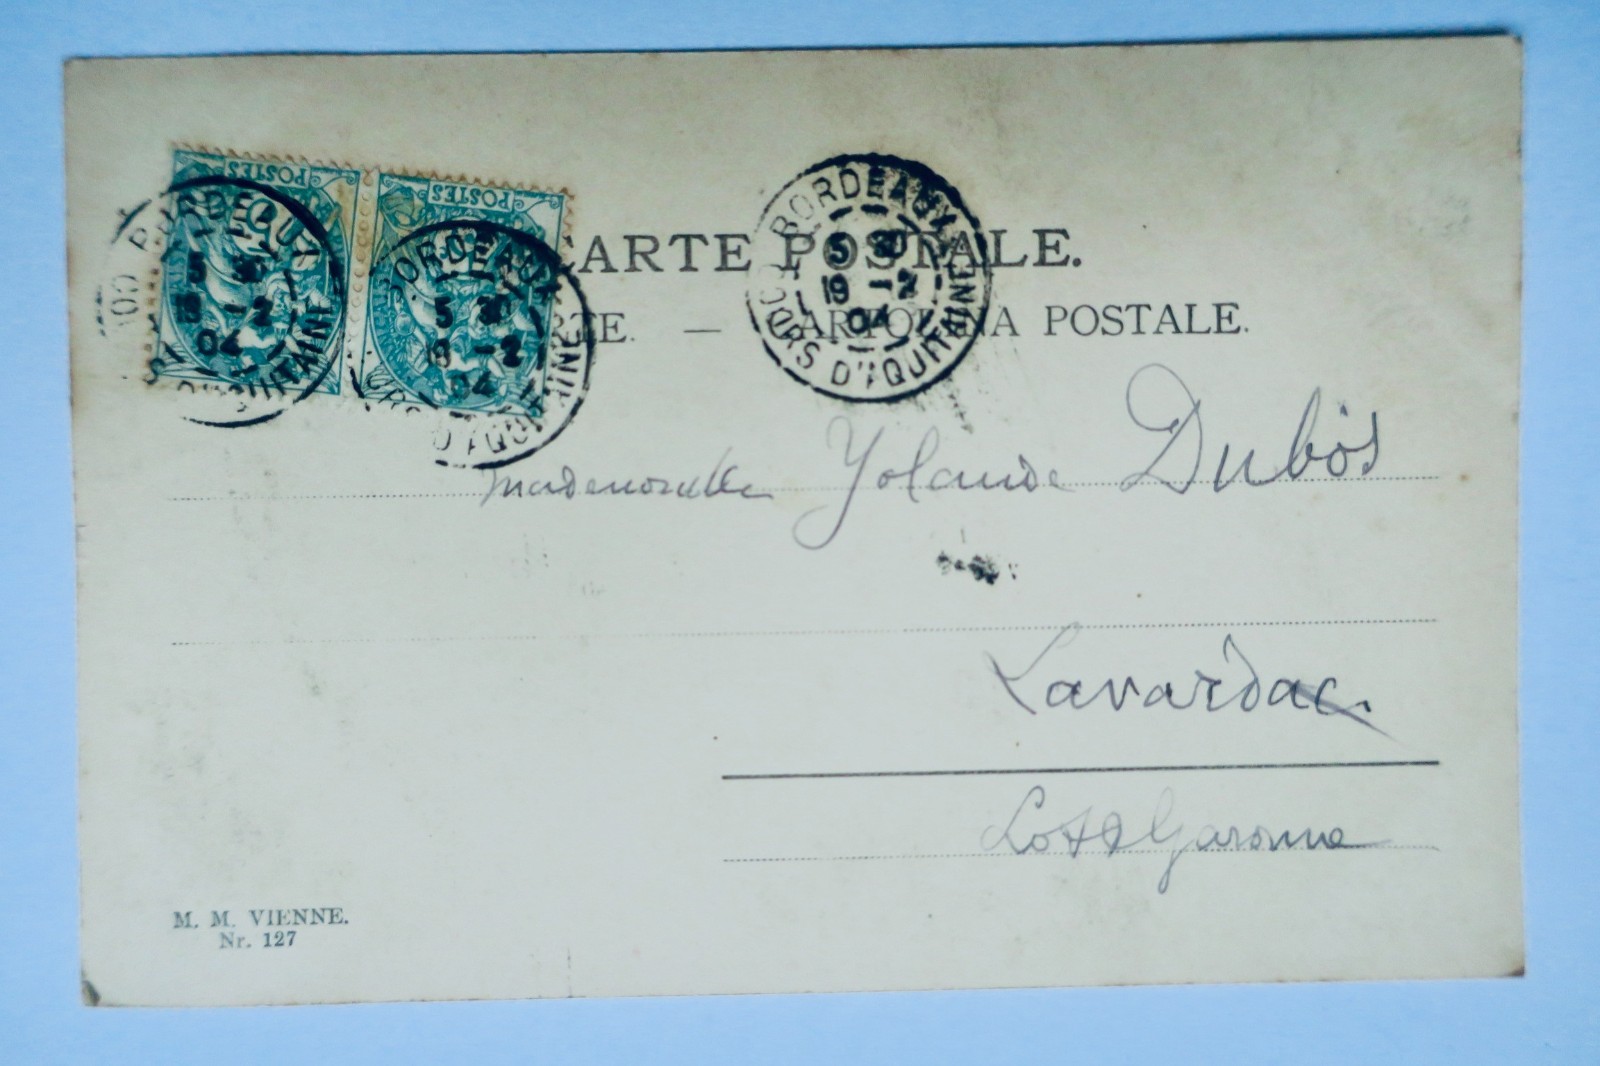 POSTES POSTES
CARTE POSTALE.
CARTOLINA POSTALE.
BORDEAUX
5 30
19 -2
04
COURS D'AQUITAINE
BORDEAUX
5 30
19 -2
04
COURS D'AQUITAINE
BORDEAUX
5 30
19 -2
04
COURS D'AQUITAINE
Mademoiselle Yolande Dubos
Lavardac
Lot & Garonne
M. M. VIENNE.
Nr. 127